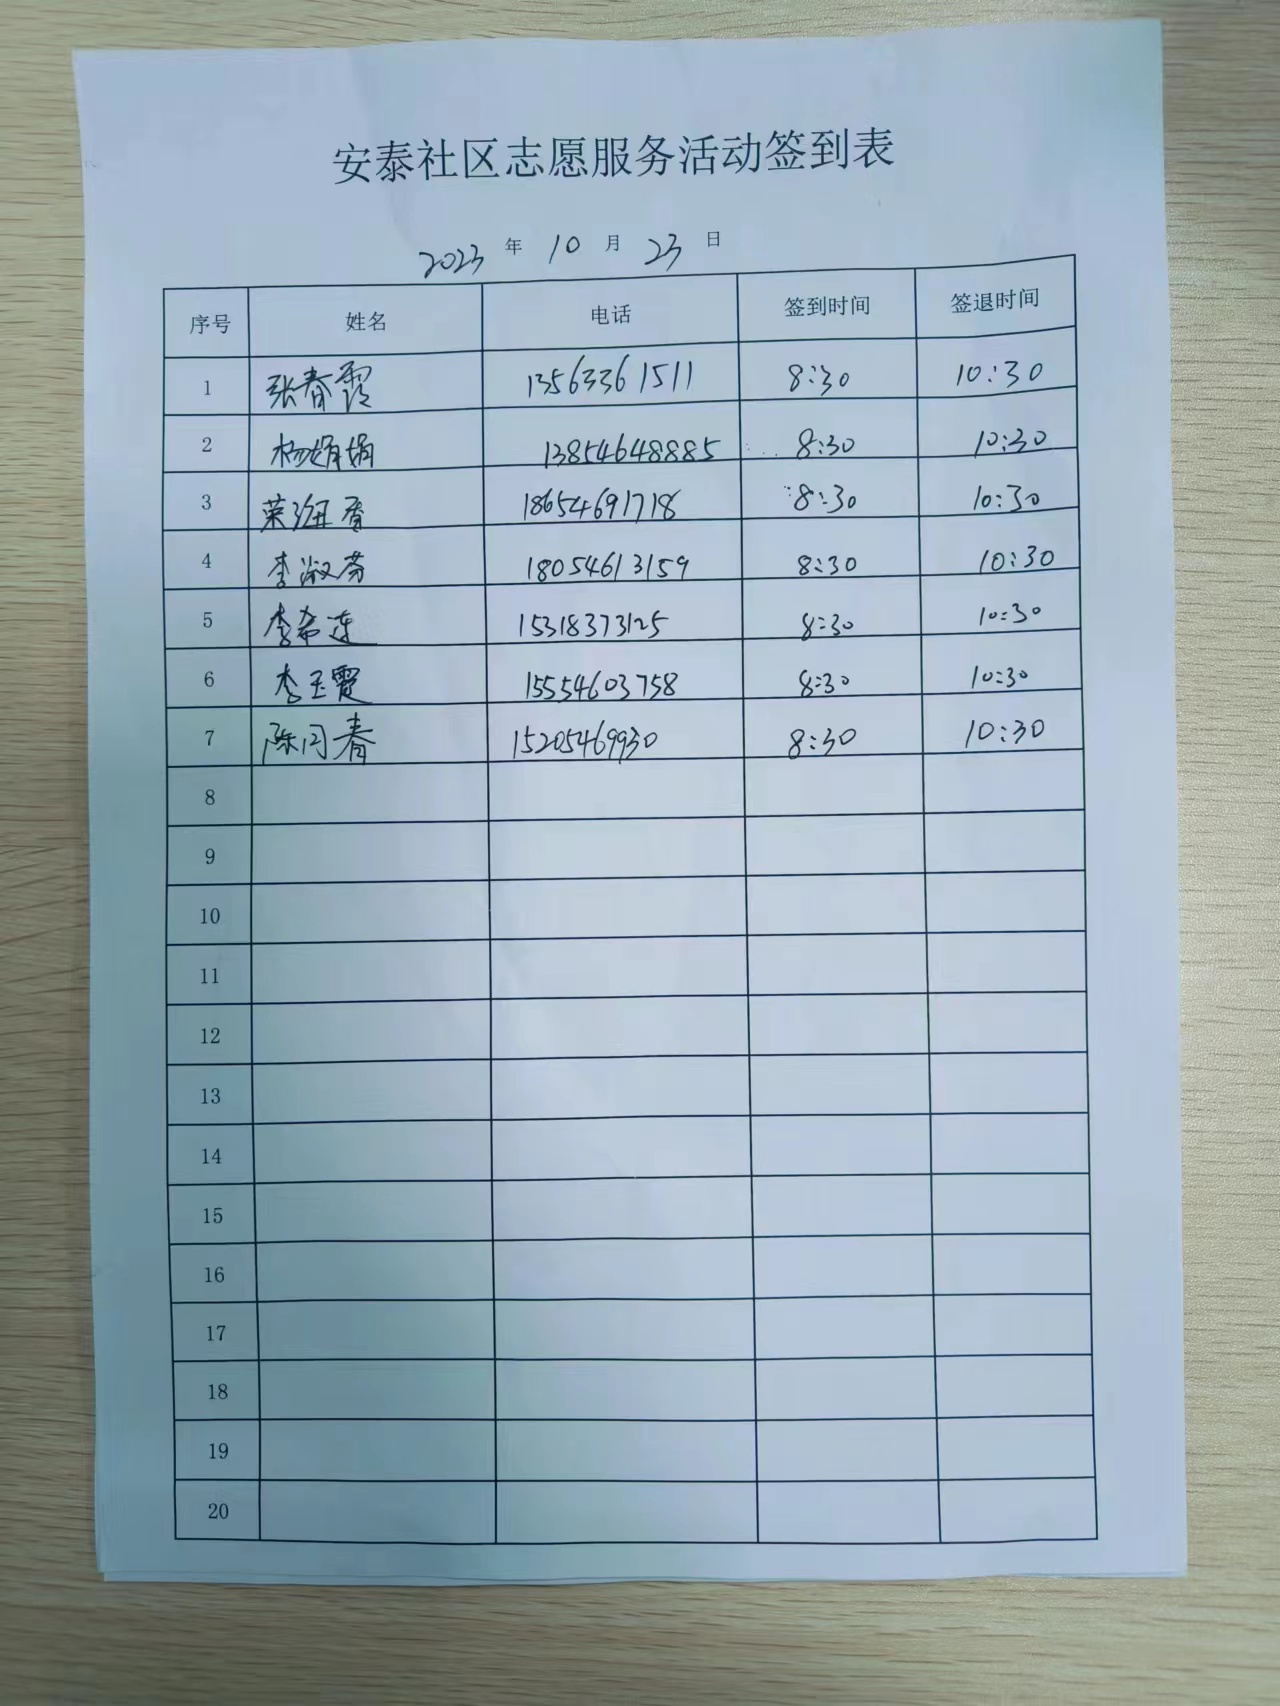 安泰社区志愿服务活动签到表
2023 年 10 月 23 日
序号 姓名 电话 签到时间 签退时间
1 张春霞 13563361511 8:30 10:30
2 杨娟娟 13854648885 8:30 10:30
3 荣海香 18654691718 8:30 10:30
4 李淑芬 18054613159 8:30 10:30
5 李希连 15318373125 8:30 10:30
6 李玉霞 15554603758 8:30 10:30
7 陈闫春 15205469930 8:30 10:30
8
9
10
11
12
13
14
15
16
17
18
19
20